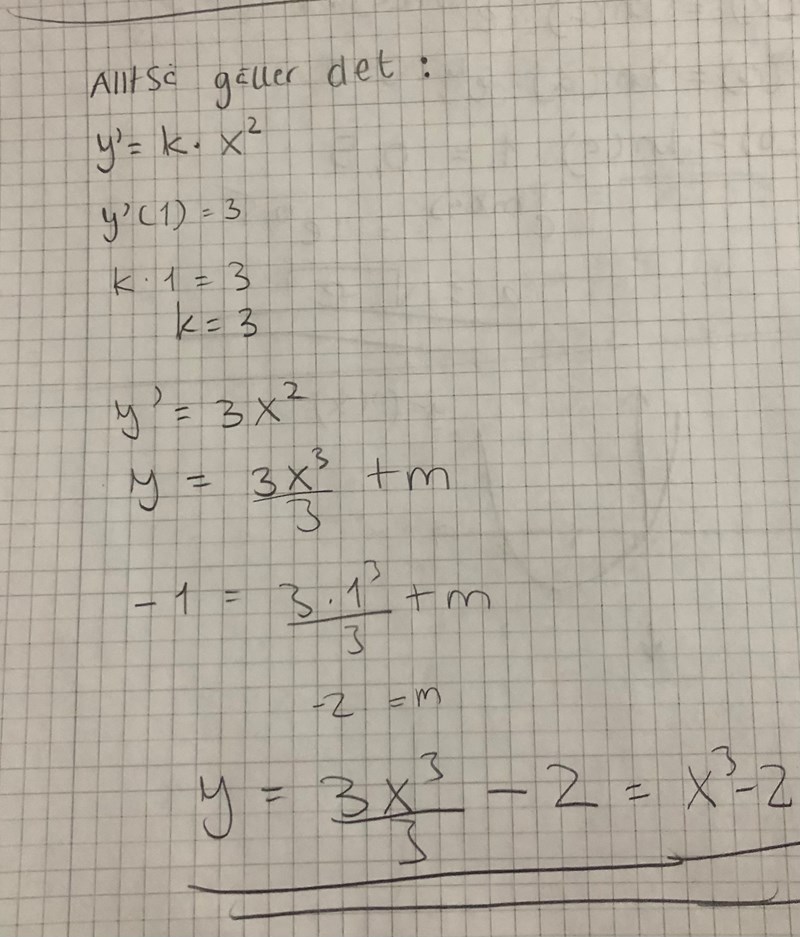 Alltså gäller det :
y' = k · x²
y'(1) = 3
k · 1 = 3
k = 3
y' = 3x²
y = 3x³/3 + m
-1 = 3 · 1³/3 + m
-2 = m
y = 3x³/3 - 2 = x³-2